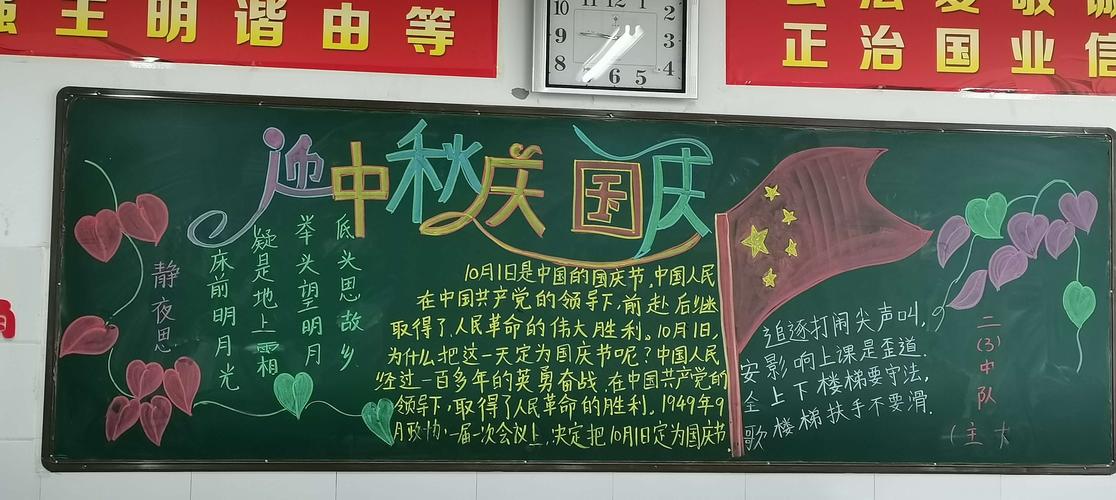 强主明谐由等
正治国业信
10
9
8
7 6 5
4
3
2
迎中秋庆国庆
静夜思
床前明月光
疑是地上霜
举头望明月
低头思故乡
10月1日是中国的国庆节,中国人民
在中国共产党的领导下,前赴后继
取得了人民革命的伟大胜利。10月1日,
为什么把这一天定为国庆节呢？中国人民
经过一百多年的英勇奋战,在中国共产党的
领导下,取得了人民革命的胜利。1949年9
月政协一届一次会议上,决定把10月1日定为国庆节
安全歌
追逐打闹尖声叫,
影响上课是歪道.
上下楼梯要守法,
楼梯扶手不要滑.
二(3)中队